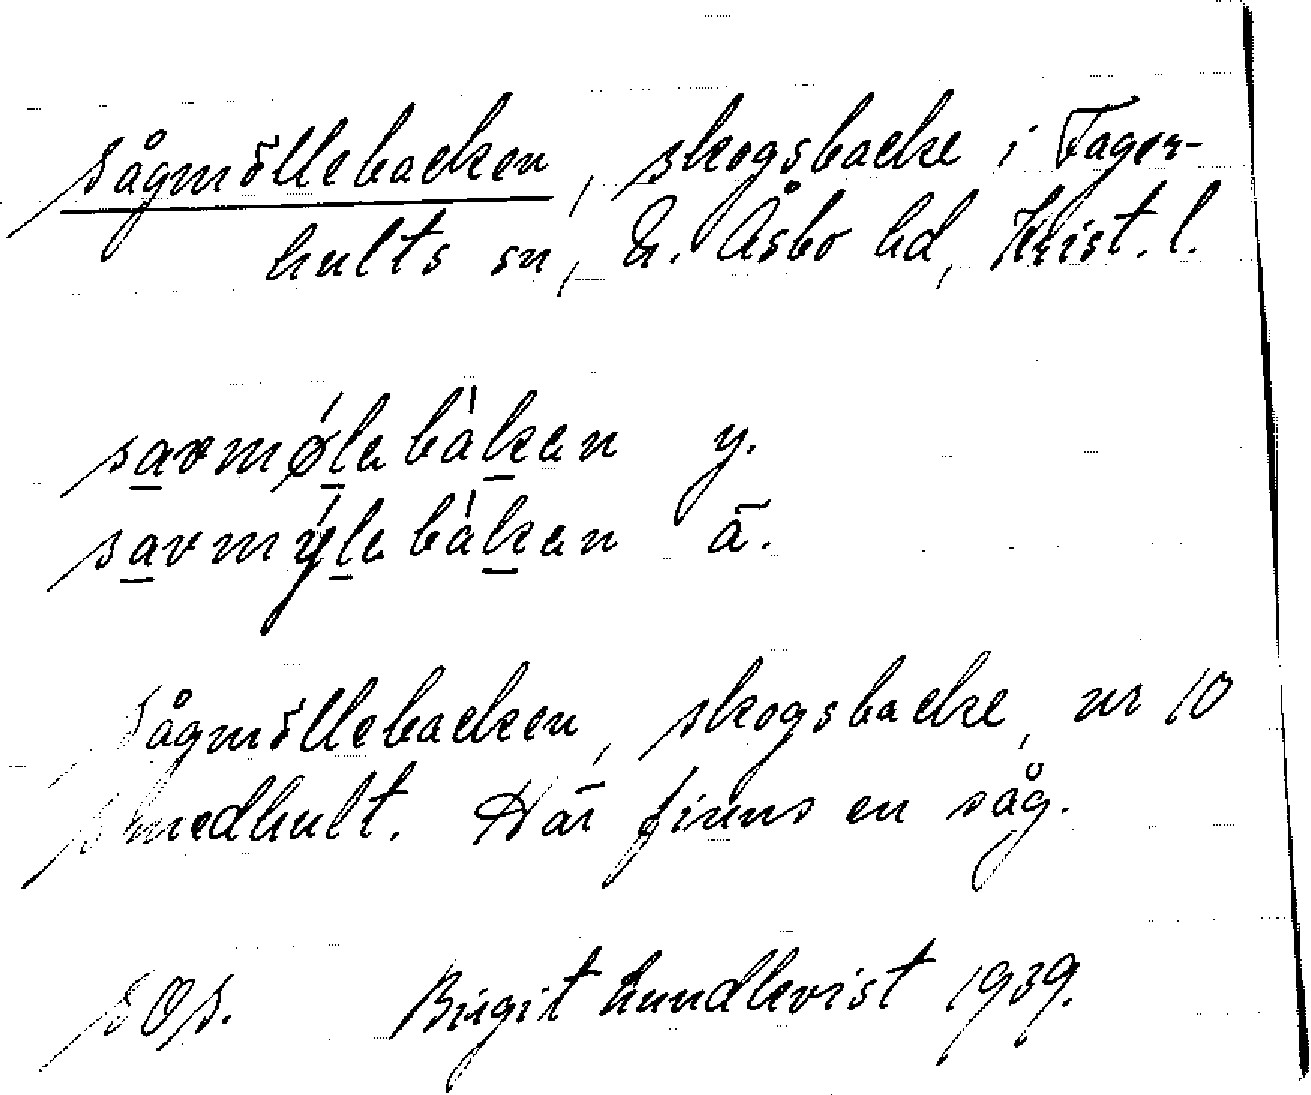 Sågmöllebacken, skogsbacke i Fager-
hults sn, N. Åsbo hd, Krist. l.
savmø̀lebàkan y.
savmỳlebàkan ä.
Sågmöllebacken, skogsbacke, nr 10
Smedhult. Här finns en såg.
SOS. Birgit Lundkvist 1939.